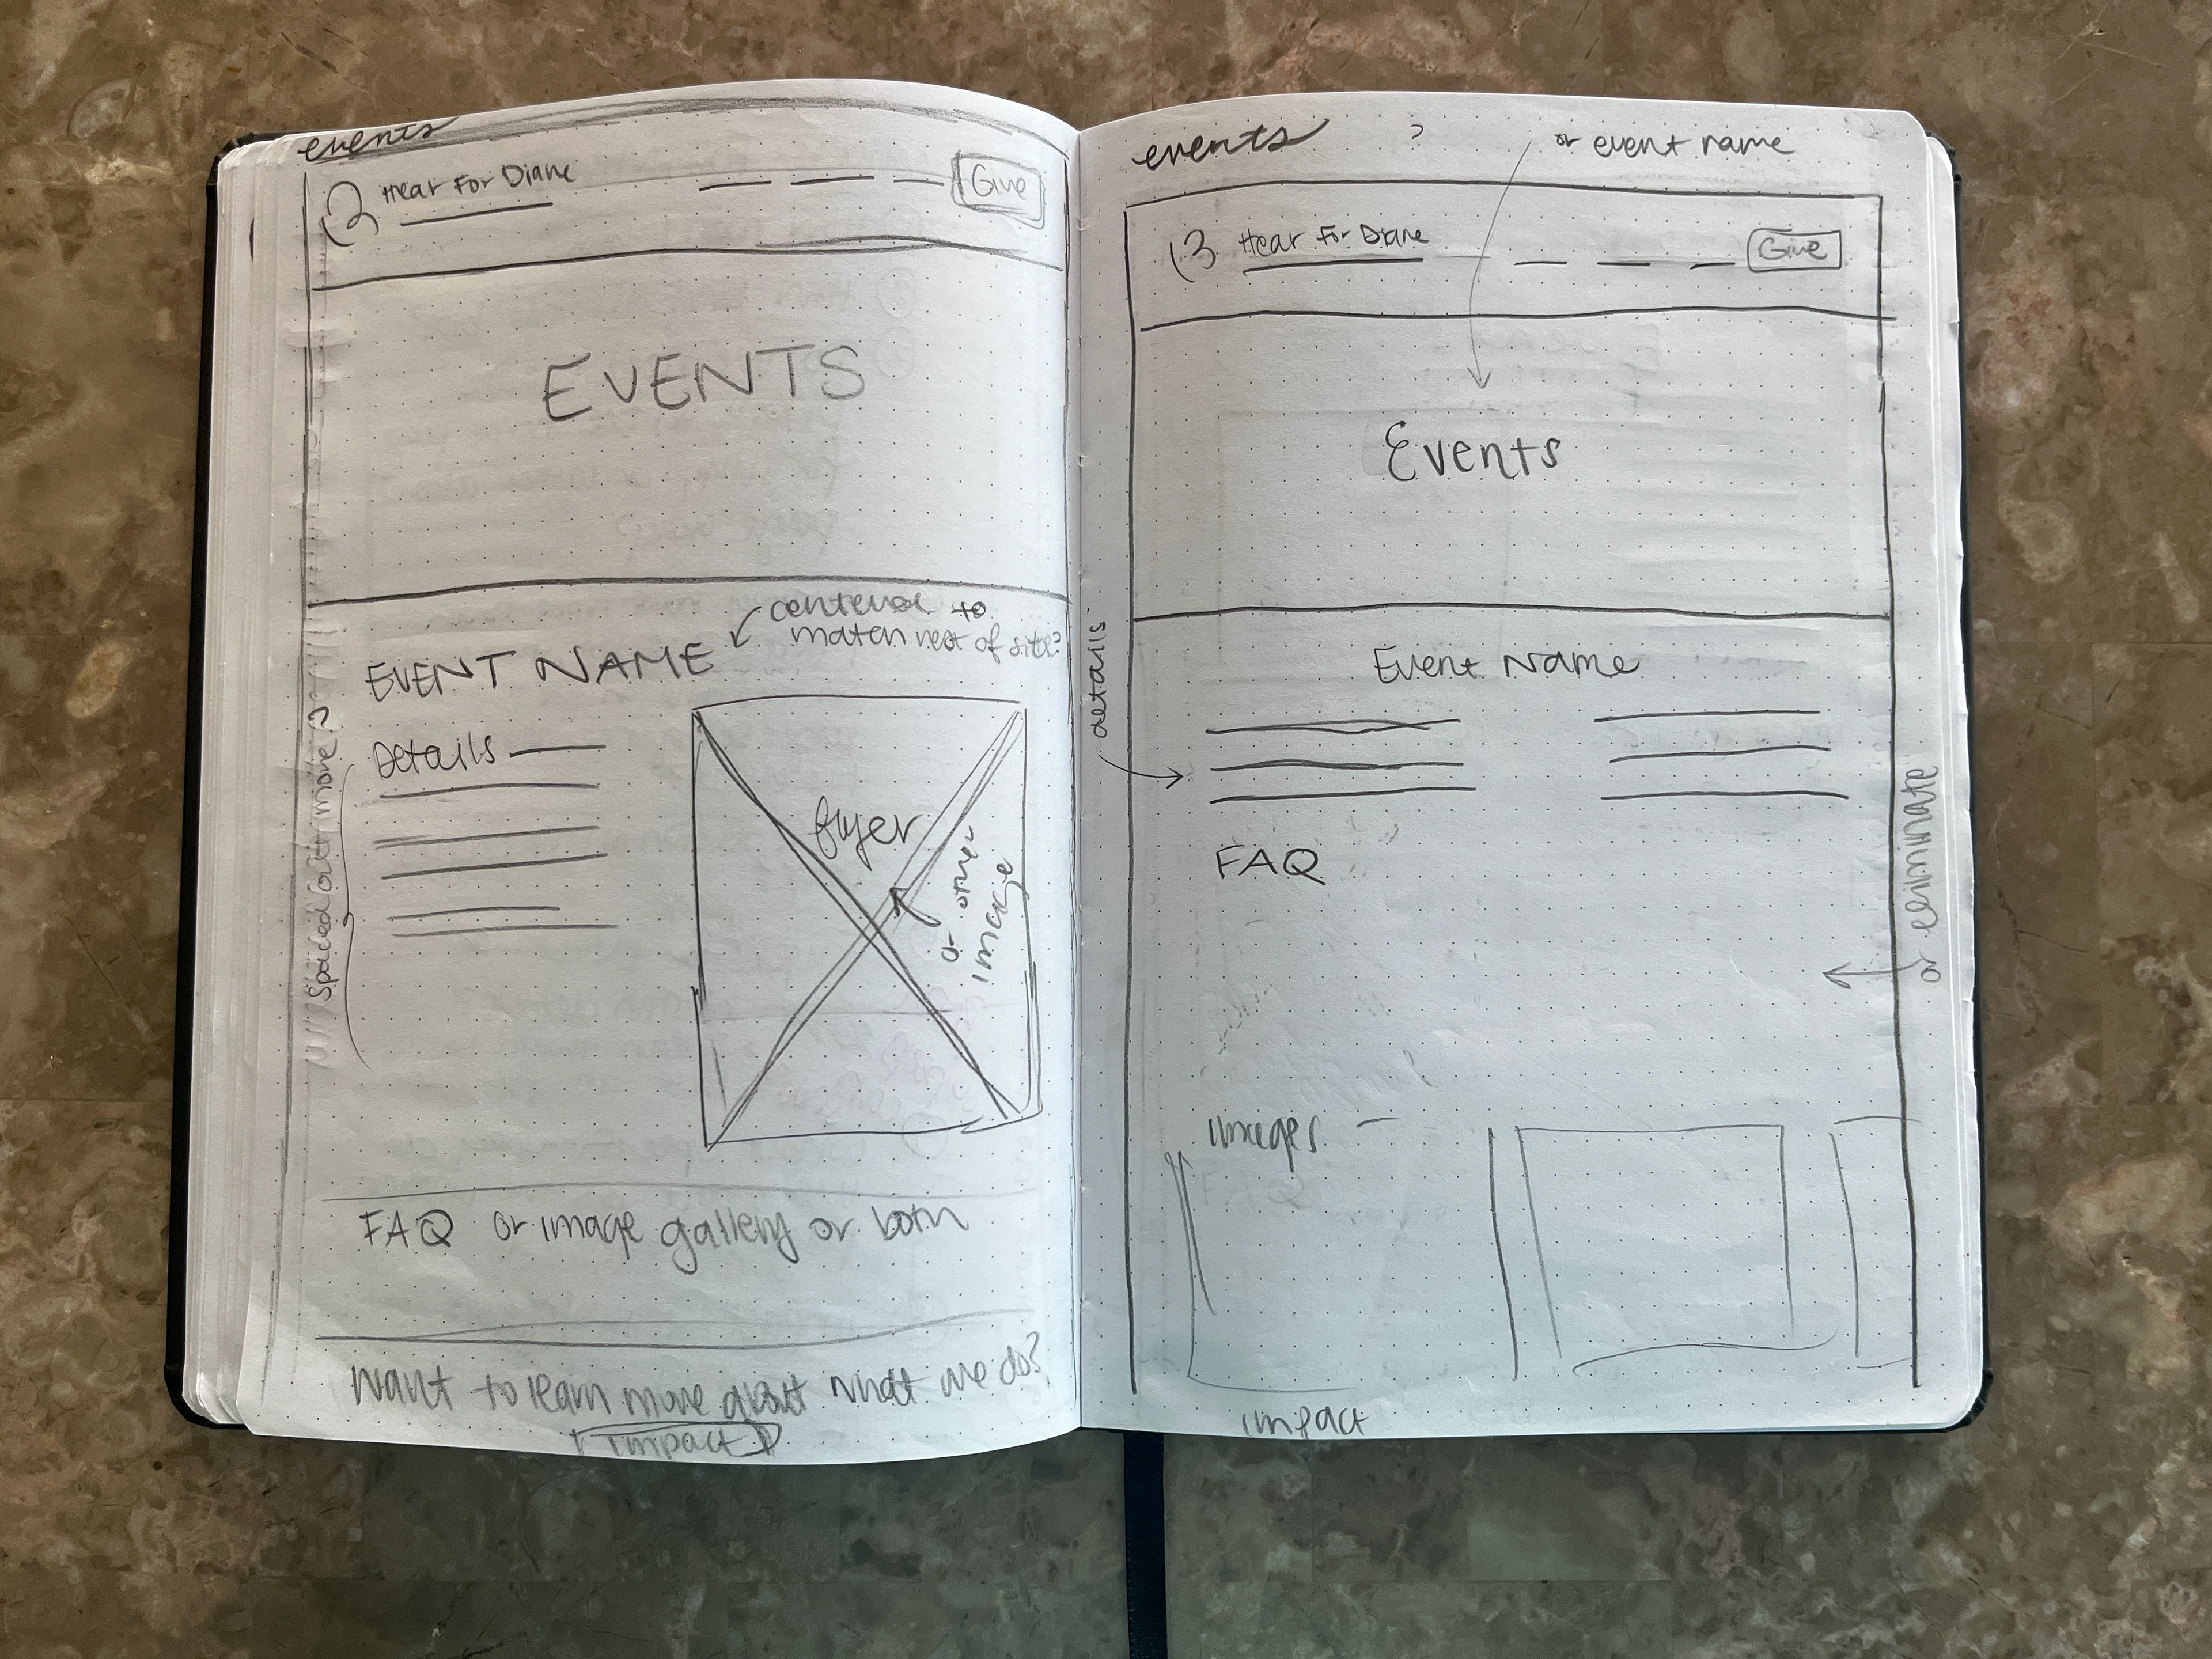 events
Hear For Diane
Give
EVENTS
centered to
match rest of site?
EVENT NAME
Details
spaced out more?
flyer
or other
image
FAQ or image gallery or both
Want to learn more about what we do?
impact
events ?
or event name
Hear For Diane
Give
Events
Event Name
details
FAQ
or eliminate
images
impact